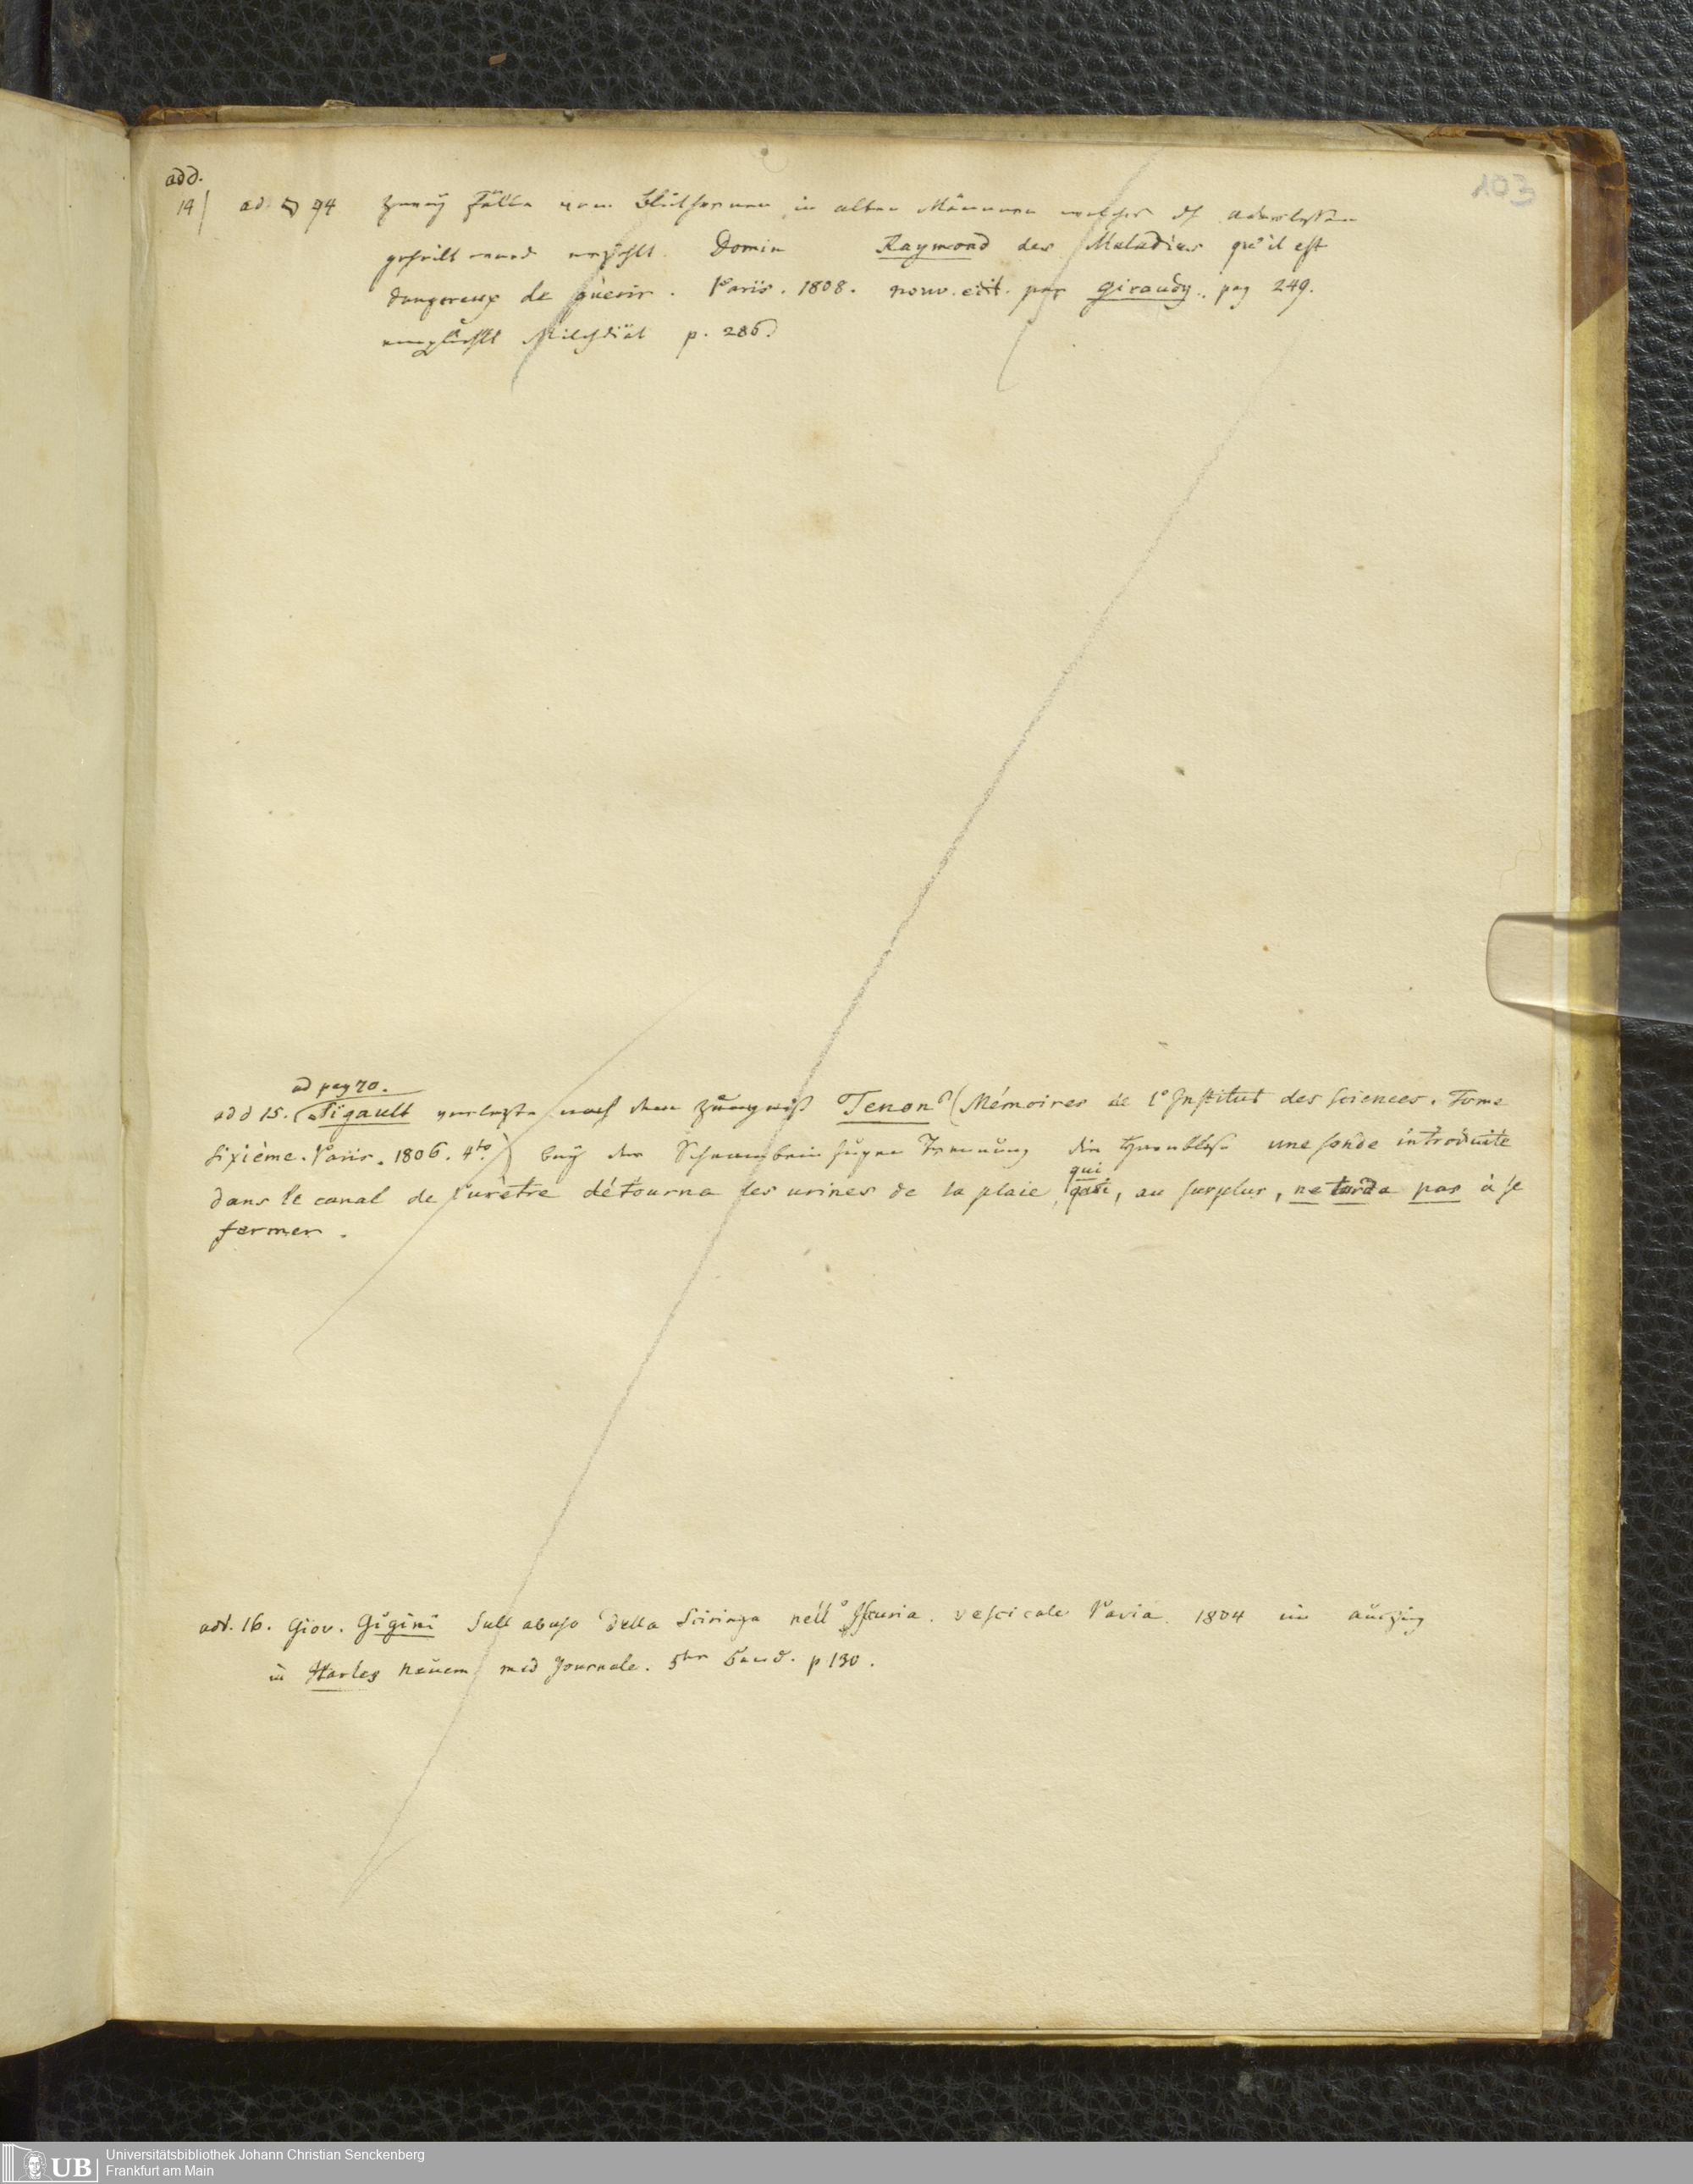 103
add.
14) ad 94 Zwey Fälle vom Blutharnen in alten Männern welche durch Aderlassen
geheilt ward erzählt. Domin Raymond des Maladies qu'il est
dangereux de guèrir. Paris. 1808. nouv. edit. par Giraudy. pag 249.
empfiehlt Milchdiät p. 286.
ad pag 70.
add 15. Sigault verlezte nach dem Zeugniß Tenon (Mémoires de l'Institut des sciences. Tome
sixième. Paris. 1806. 4to.) bey der Schaambein fugen Trennung die Harnblase une sonde introduite
dans le canal de l'urètre détourna les urines de la plaie, qui, au surplus, ne tarda pas à se
fermer.
add. 16. Giov. Gigini Sull abuso della Sciringa nell' Iscuria vescicale Pavia 1804 im Auszug
in Harles Neuem med Journale. 5ter Band. p 130.
UB
Universitätsbibliothek Johann Christian Senckenberg
Frankfurt am Main